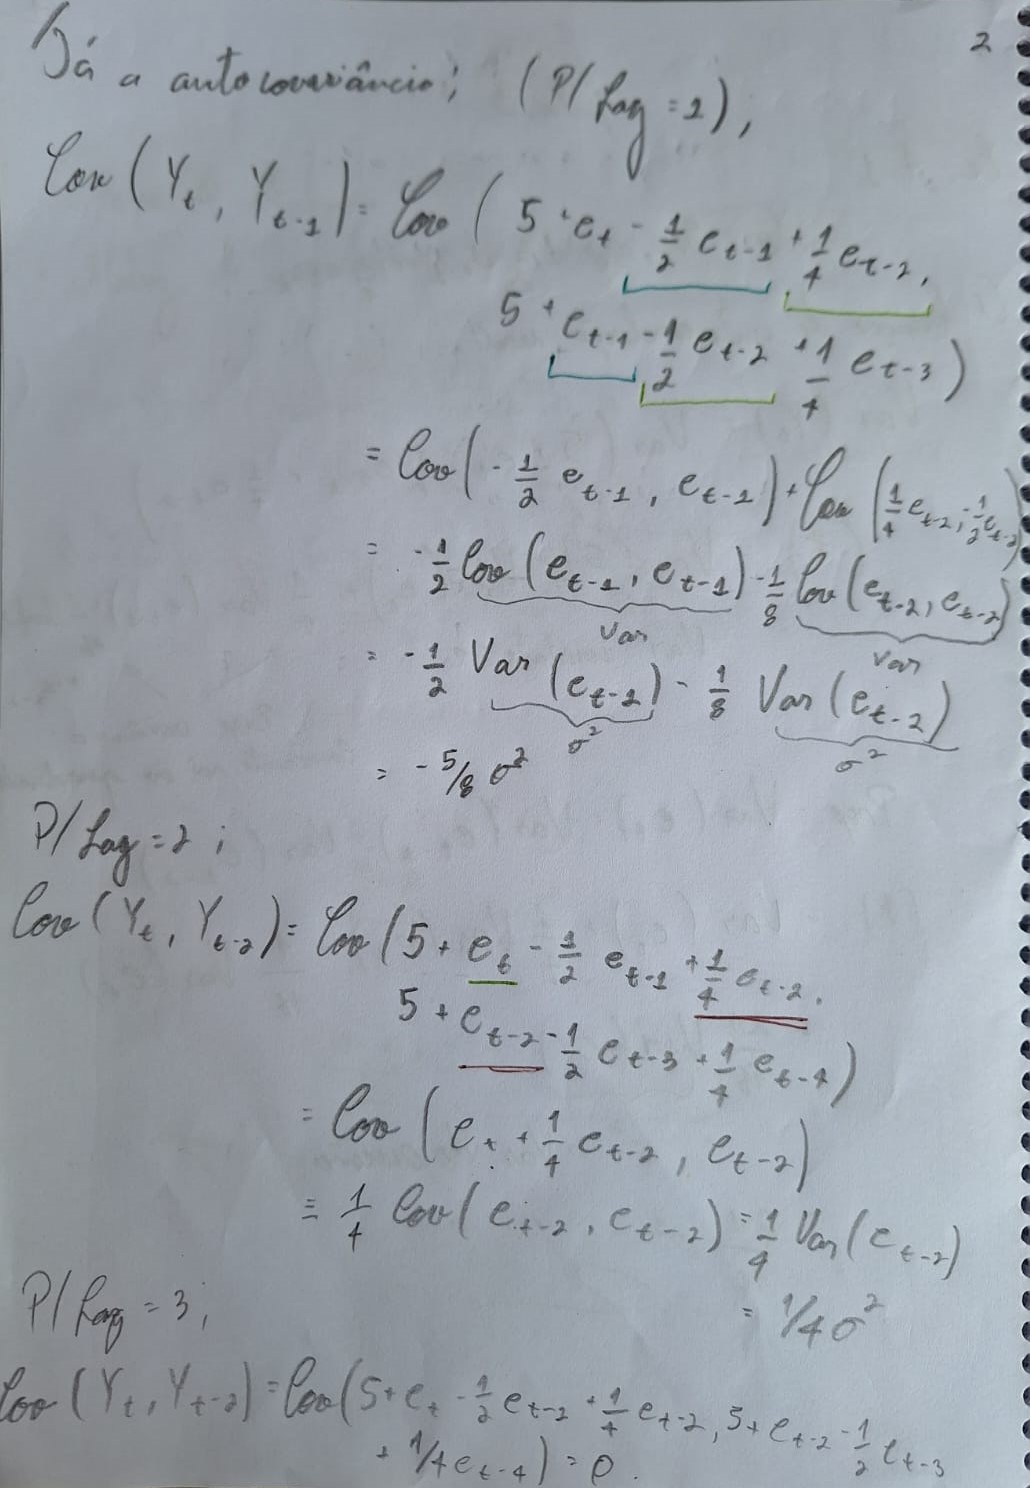 2
Já a autocovariância; (P/ Lag = 1),
Cov (Y_t, Y_{t-1}) = Cov ( 5 + e_t - 1/2 e_{t-1} + 1/4 e_{t-2},
5 + e_{t-1} - 1/2 e_{t-2} + 1/4 e_{t-3} )
= Cov( - 1/2 e_{t-1}, e_{t-1} ) + Cov ( 1/4 e_{t-2}, -1/2 e_{t-2} )
= - 1/2 Cov ( e_{t-1}, e_{t-1} ) - 1/8 Cov ( e_{t-2}, e_{t-2} )
Var Var
= - 1/2 Var ( e_{t-1} ) - 1/8 Var ( e_{t-2} )
σ² σ²
= - 5/8 σ²
P/ Lag = 2 ;
Cov ( Y_t, Y_{t-2} ) = Cov ( 5 + e_t - 1/2 e_{t-1} + 1/4 e_{t-2},
5 + e_{t-2} - 1/2 e_{t-3} + 1/4 e_{t-4} )
= Cov ( e_t + 1/4 e_{t-2}, e_{t-2} )
= 1/4 Cov ( e_{t-2}, e_{t-2} ) = 1/4 Var ( e_{t-2} )
= 1/4 σ²
P/ Lag = 3 ;
Cov ( Y_t, Y_{t-2} ) = Cov ( 5 + e_t - 1/2 e_{t-2} + 1/4 e_{t-2}, 5 + e_{t-2} - 1/2 e_{t-3}
+ 1/4 e_{t-4} ) = 0.